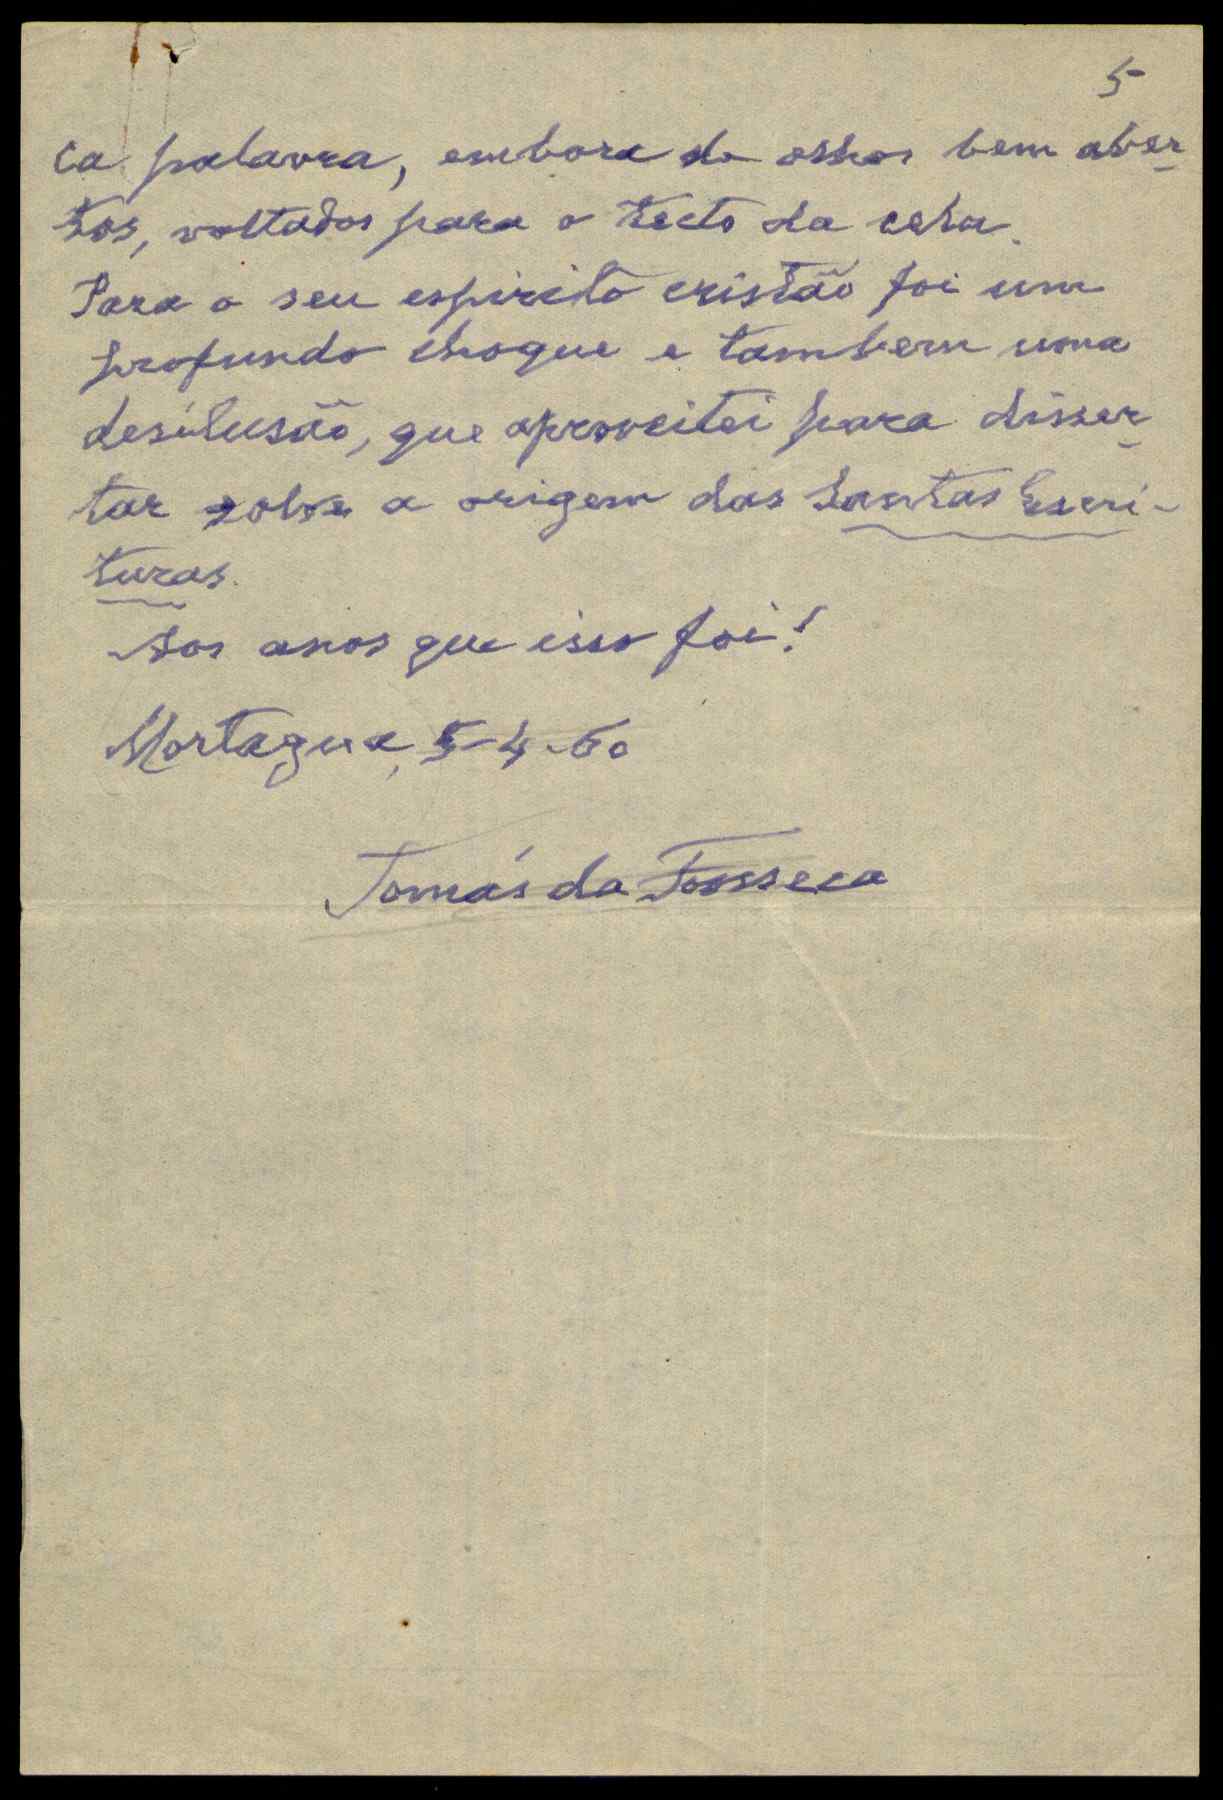 5
ca palavra, embora de olhos bem aber-
tos, voltados para o tecto da cela.
Para o seu espirito cristão foi um
profundo choque e tambem uma
desilusão, que aproveitei para disser-
tar sobre a origem das Santas Escri-
turas.
Aos anos que isso foi!
Mortagua, 5-4-60
Tomás da Fonseca